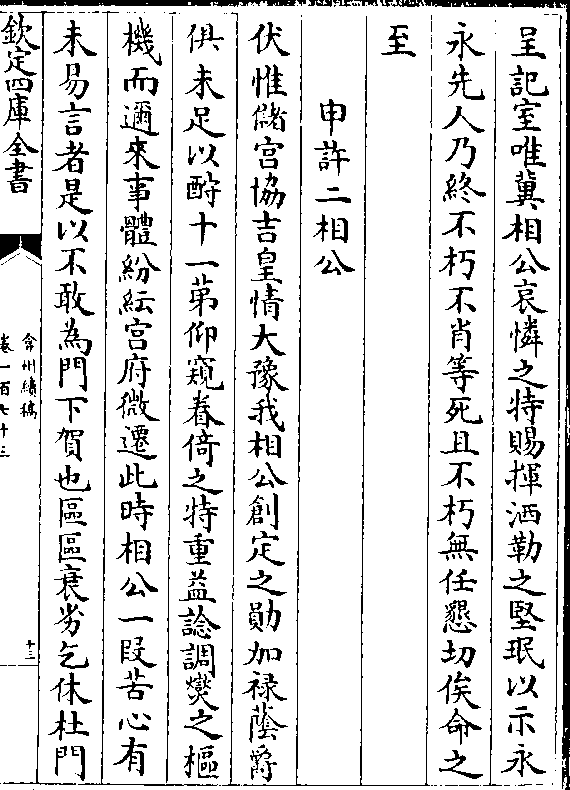 呈記室唯冀相公哀憐之特賜揮洒勒之堅珉以示永
永先人乃終不朽不肖等死且不朽無任懇切俟命之
至
申許二相公
伏惟儲宫協吉皇情大豫我相公創定之勛加禄蔭爵
俱未足以酧十一苐仰窺眷倚之特重益諗調爕之樞
機而邇來事體紛紜宫府微遷此時相公一叚苦心有
未易言者是以不敢為門下賀也區區衰劣乞休杜門
欽定四庫全書
弇州續稿
卷一百七十三
十三